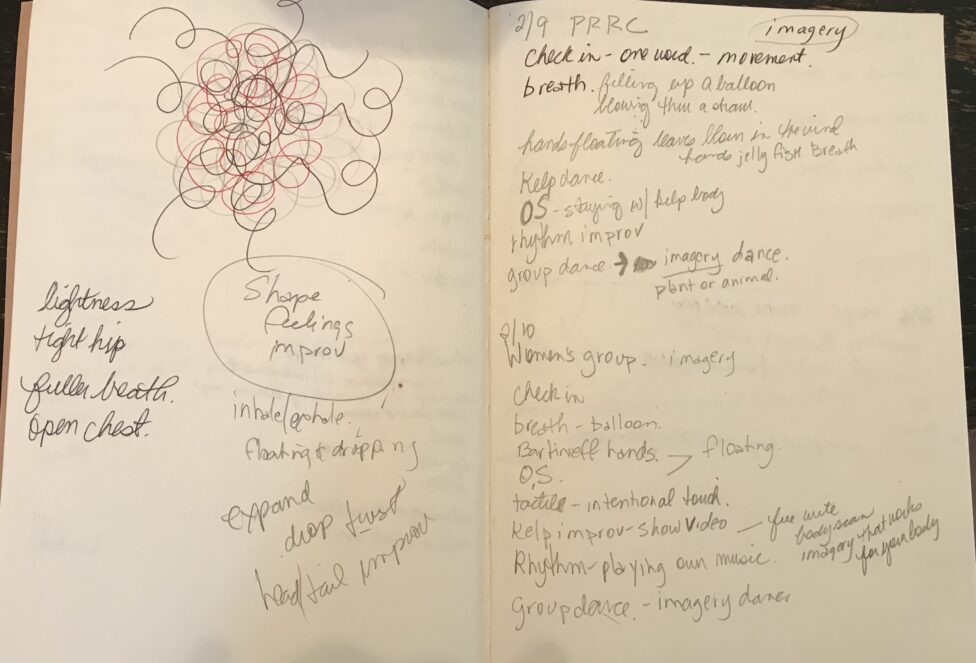 lightness
tight hip
fuller breath.
open chest.
Shape
feelings
improv
inhale/exhale.
floating & dropping
expand
drop twist
head/tail improv
2/9 PRRC
imagery
check in - one word. - movement.
breath. filling up a balloon
blowing thru a straw.
hands floating leaves them in the wind
hands jelly fish Breath
Kelp dance.
OS - staying w/ kelp body
rhythm improv
group dance → imagery dance.
plant or animal.
2/10
Women's group. imagery
check in
breath - balloon.
Bartinieff hands. > floating.
O.S.
tactile - intentional touch.
Kelp improv - show video — free write
body scan
imagery that works
for your body
Rhythm - playing own music.
Group dance - imagery dance